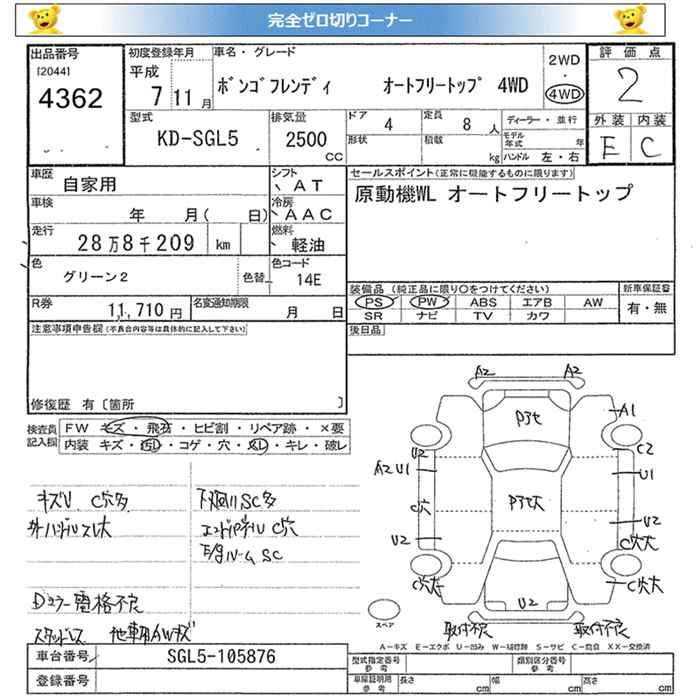 完全ゼロ切りコーナー
出品番号
[2044]
4362
初度登録年月
平成
7年 11月
車名・グレード
ボンゴフレンディ オートフリートップ 4WD
2WD
・
4WD
評価点
2
型式
KD-SGL5
排気量
2500
CC
ドア
4
定員
8人
形状
積載
kg
ディーラー・並行
モデル年式 年
ハンドル 左・右
外装 内装
E C
車歴
自家用
シフト
AT
車検
年 月( 日)
冷房
AAC
走行
28万8千209 km
燃料
軽油
色
グリーン2
色替
色コード
14E
R券
11,710円
名変通知期限
月 日
セールスポイント(正常に機能するものに限ります)
原動機WL オートフリートップ
装備品 (純正品に限り○をつけてください)
PS PW ABS エアB AW
SR ナビ TV カワ
新車保証書
有・無
後日品
注意事項申告欄(不具合内容等は具体的に記入して下さい)
修復歴 有〔箇所 〕
検査員記入欄
FW キズ・飛石・ヒビ割・リペア跡・×要
内装 キズ・汚レ・コゲ・穴・スレ・キレ・破レ
キズU C穴多
外ハンドルスレ大
下廻りSC多
エンドパネルU C穴
E/gルームSC
Dカラー 電格不良
スタッドレス 他車用AWキズ
A2 A2
P3セ
A1
U2
C2
A2 U1
U1
C穴
P3セ大
U2
U2
C穴大
C穴大
C穴大
U2
取付不良
取付不良
スペア
A-キズ E-エクボ U-凹み W-補修跡 S-サビ C-腐食 XX-交換済
車台番号
SGL5-105876
登録番号
型式指定番号
参考
類別区分番号
参考
車庫証明用
参考
長さ cm
幅 cm
高さ cm